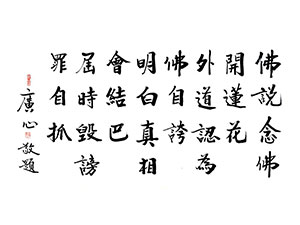 佛說念佛
開蓮花
外道認為
佛自誇
明白真相
會結巴
屆時毀謗
罪自抓
廣心敬題